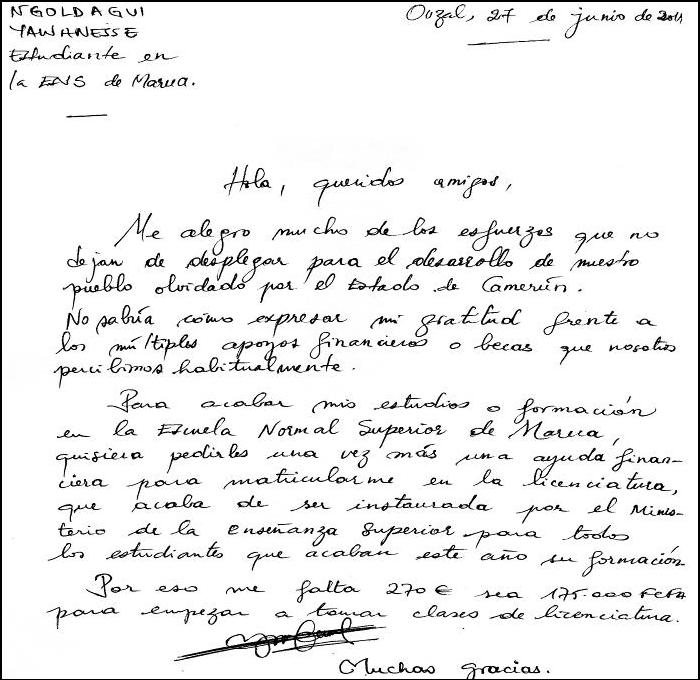 NGOLDAGUI
YAWANEISSE
Estudiante en
la ENS de Marua.
Ouzal, 27 de junio de 2011
Hola, queridos amigos,
Me alegro mucho de los esfuerzos que no
dejan de desplegar para el desarrollo de nuestro
pueblo olvidado por el Estado de Camerún.
No sabría cómo expresar mi gratitud frente a
los múltiples apoyos financieros o becas que nosotros
percibimos habitualmente.
Para acabar mis estudios o formación
en la Escuela Normal Superior de Marua,
quisiera pedirles una vez más una ayuda finan-
ciera para matricularme en la licenciatura,
que acaba de ser instaurada por el Minis-
terio de la enseñanza Superior para todos
los estudiantes que acaban este año su formación.
Por eso me falta 270 € sea 175.000 FCFA
para empezar a tomar clases de licenciatura.
Muchas gracias.